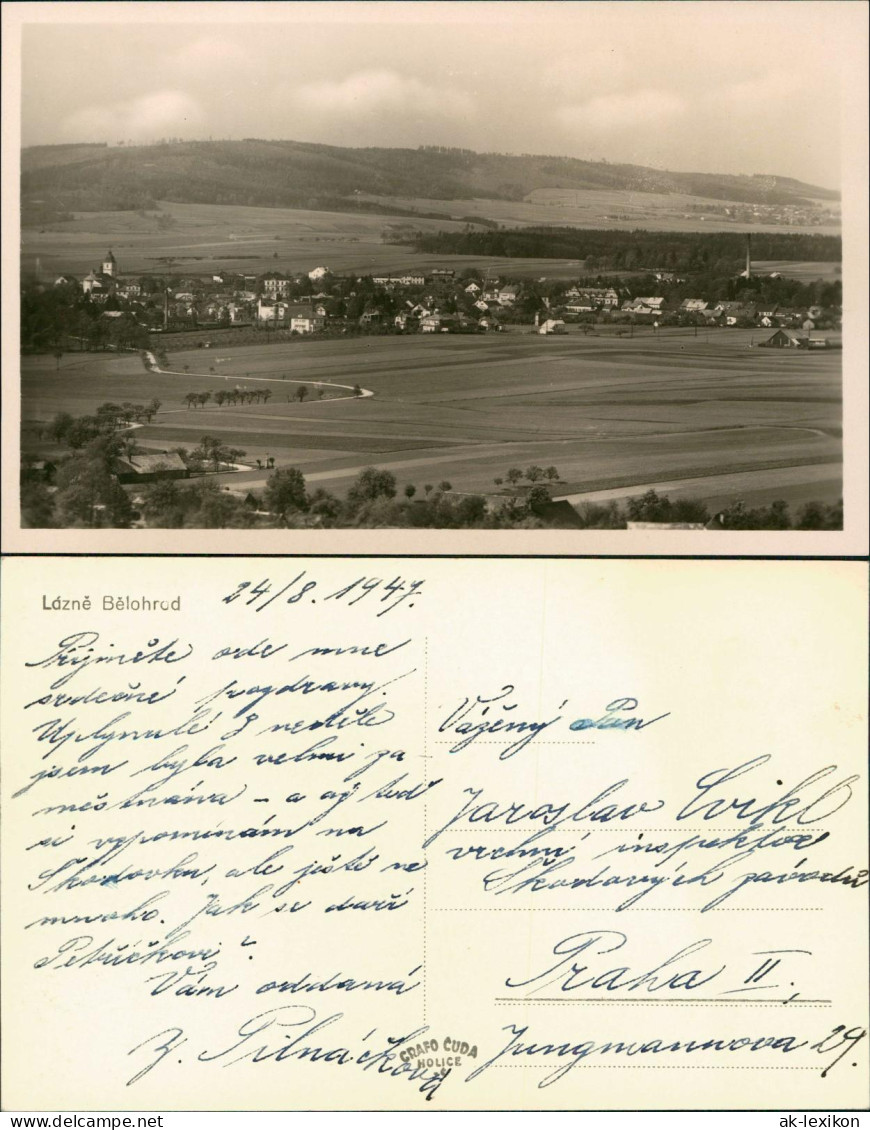 Lázně Bělohrad
24/8. 1947.
Přijměte ode mne
srdečné pozdravy.
Uplynulé 3 neděle
jsem byla velmi za
městnána – a až teď
si vzpomínám na
Škodovku, ale ještě ne
mnoho. Jak se daří
Petříčkovi?
Vám oddaná
Z. Pilnáčková
Vážený Pan
Jaroslav Cvikl
vrchní inspektor
Škodových závodů
Praha II.
Jungmannova 29.
GRAFO ČUDA
HOLICE
ak-lexikon